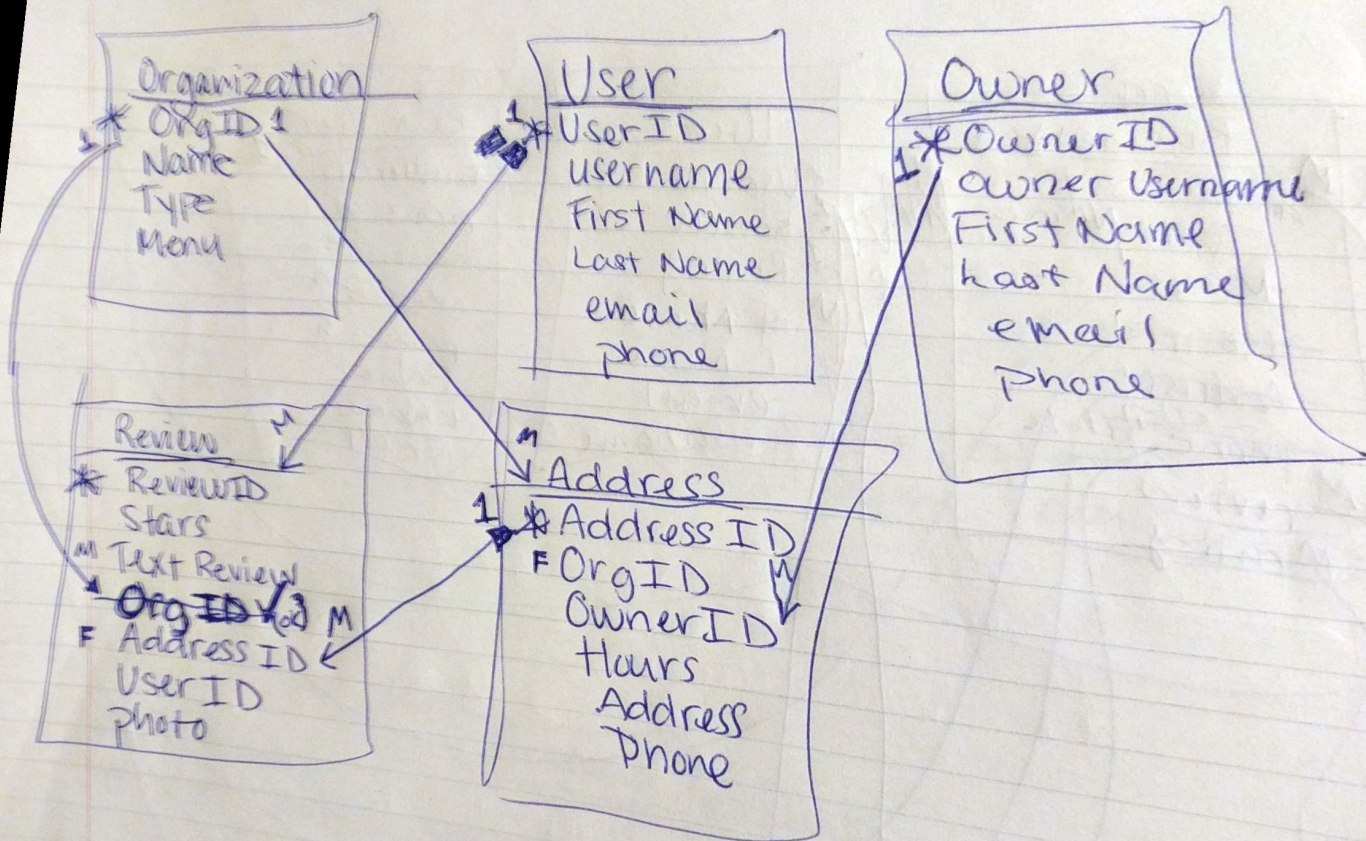 Organization
* OrgID 1
1
Name
Type
Menu
User
1
* UserID
username
First Name
Last Name
email
phone
Owner
* OwnerID
1
owner username
First Name
Last Name
email
phone
Review
M
* ReviewID
Stars
M Text Review
Org ID
M
F Address ID
UserID
photo
M
Address
1
* Address ID
F OrgID
M
OwnerID
Hours
Address
Phone